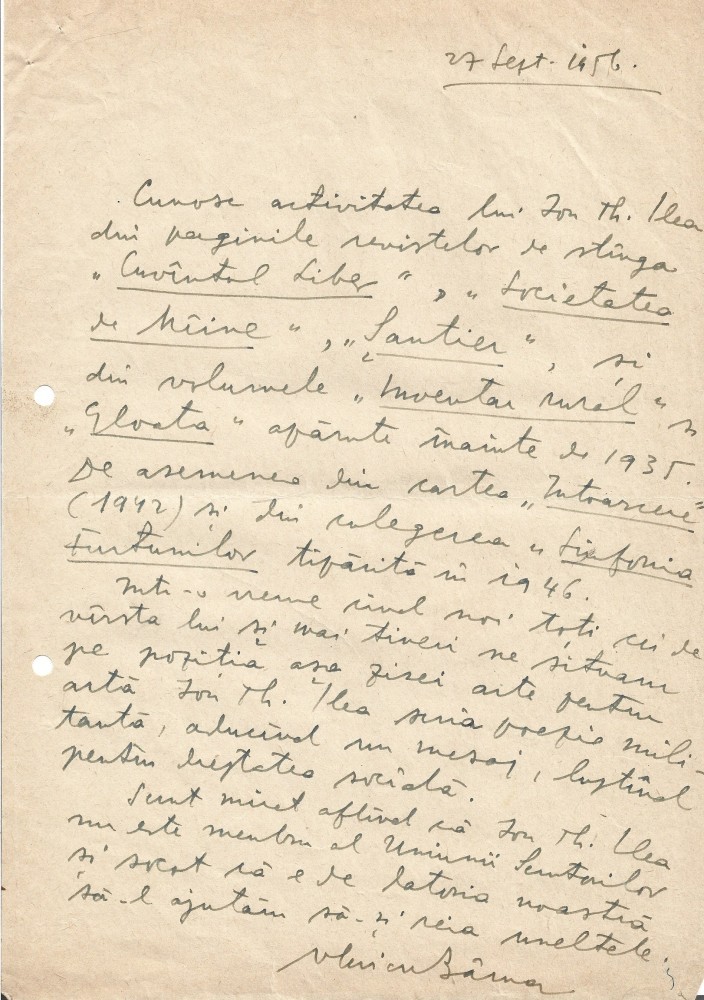 27 Sept. 1956.
Cunosc activitatea lui Ion Th. Ilea
din paginile revistelor de stînga
"Cuvîntul Liber", "Societatea
de Mîine", "Șantier", și
din volumele "Inventar rural" și
"Gloata" apărute înainte de 1935.
De asemenea din cartea "Întoarcere"
(1942) și din culegerea "Simfonia
Furtunilor" tipărită în 1946.
Într-o vreme cînd noi toți cei de
vîrsta lui și mai tineri ne situam
pe poziția așa zisei arte pentru
artă Ion Th. Ilea scria poezie mili-
tantă, aducînd un mesaj, luptînd
pentru dreptatea socială.
Sunt mirat aflînd că Ion Th. Ilea
nu este membru al Uniunii Scriitorilor
și socot că e de datoria noastră
să-l ajutăm să-și reia uneltele.